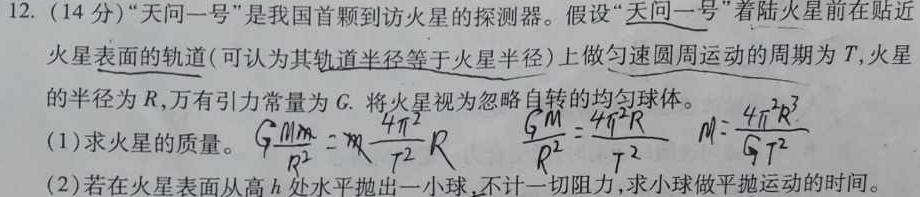 12. (14 分)“天问一号”是我国首颗到访火星的探测器。假设“天问一号”着陆火星前在贴近
火星表面的轨道(可认为其轨道半径等于火星半径)上做匀速圆周运动的周期为 T,火星
的半径为 R,万有引力常量为 G. 将火星视为忽略自转的均匀球体。
(1)求火星的质量。 G\frac{Mm}{R^2} = m\frac{4π^2}{T^2}R \frac{GM}{R^2} = \frac{4π^2R}{T^2} M = \frac{4π^2R^3}{GT^2}
(2)若在火星表面从高 h 处水平抛出一小球,不计一切阻力,求小球做平抛运动的时间。